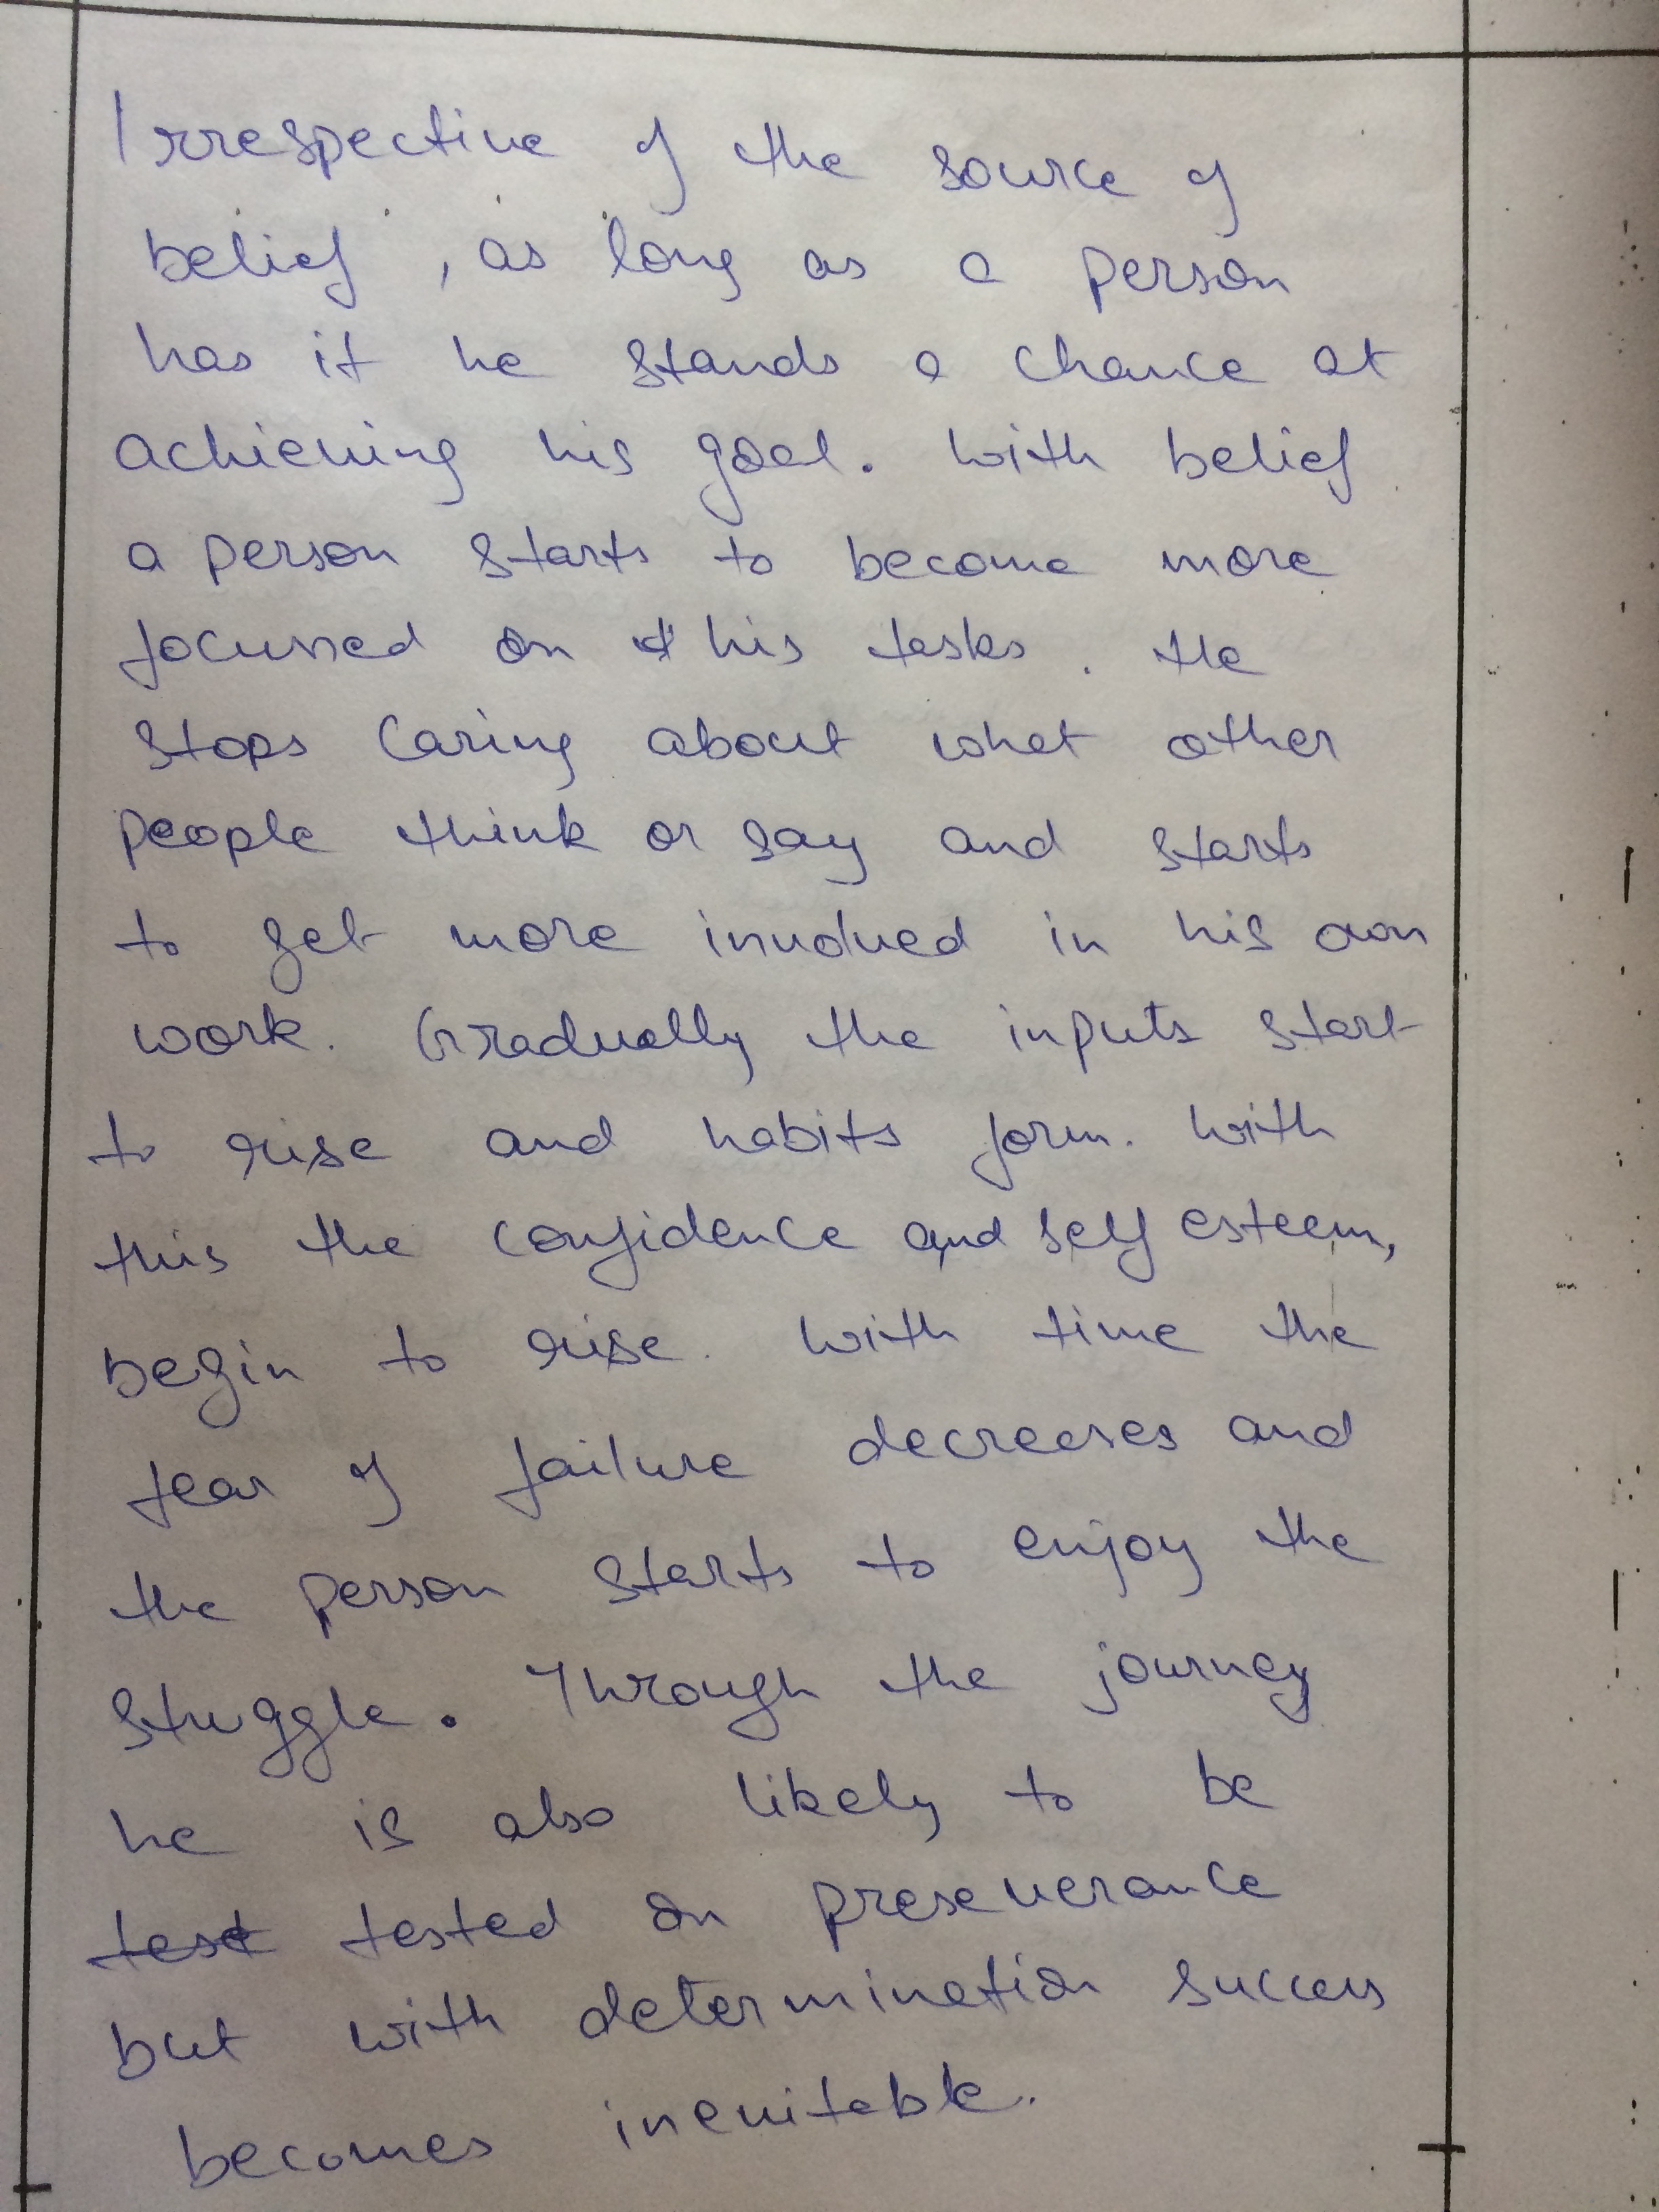 Irrespective of the source of
belief, as long as a person
has it he stands a chance at
achieving his goal. With belief
a person starts to become more
focussed on his tasks. He
stops caring about what other
people think or say and starts
to get more involved in his own
work. Gradually the inputs start
to rise and habits form. With
this the confidence and self esteem,
begin to rise. With time the
fear of failure decreases and
the person starts to enjoy the
stuggle. Through the journey
he is also likely to be
test tested on preseverance
but with determination success
becomes inevitable.